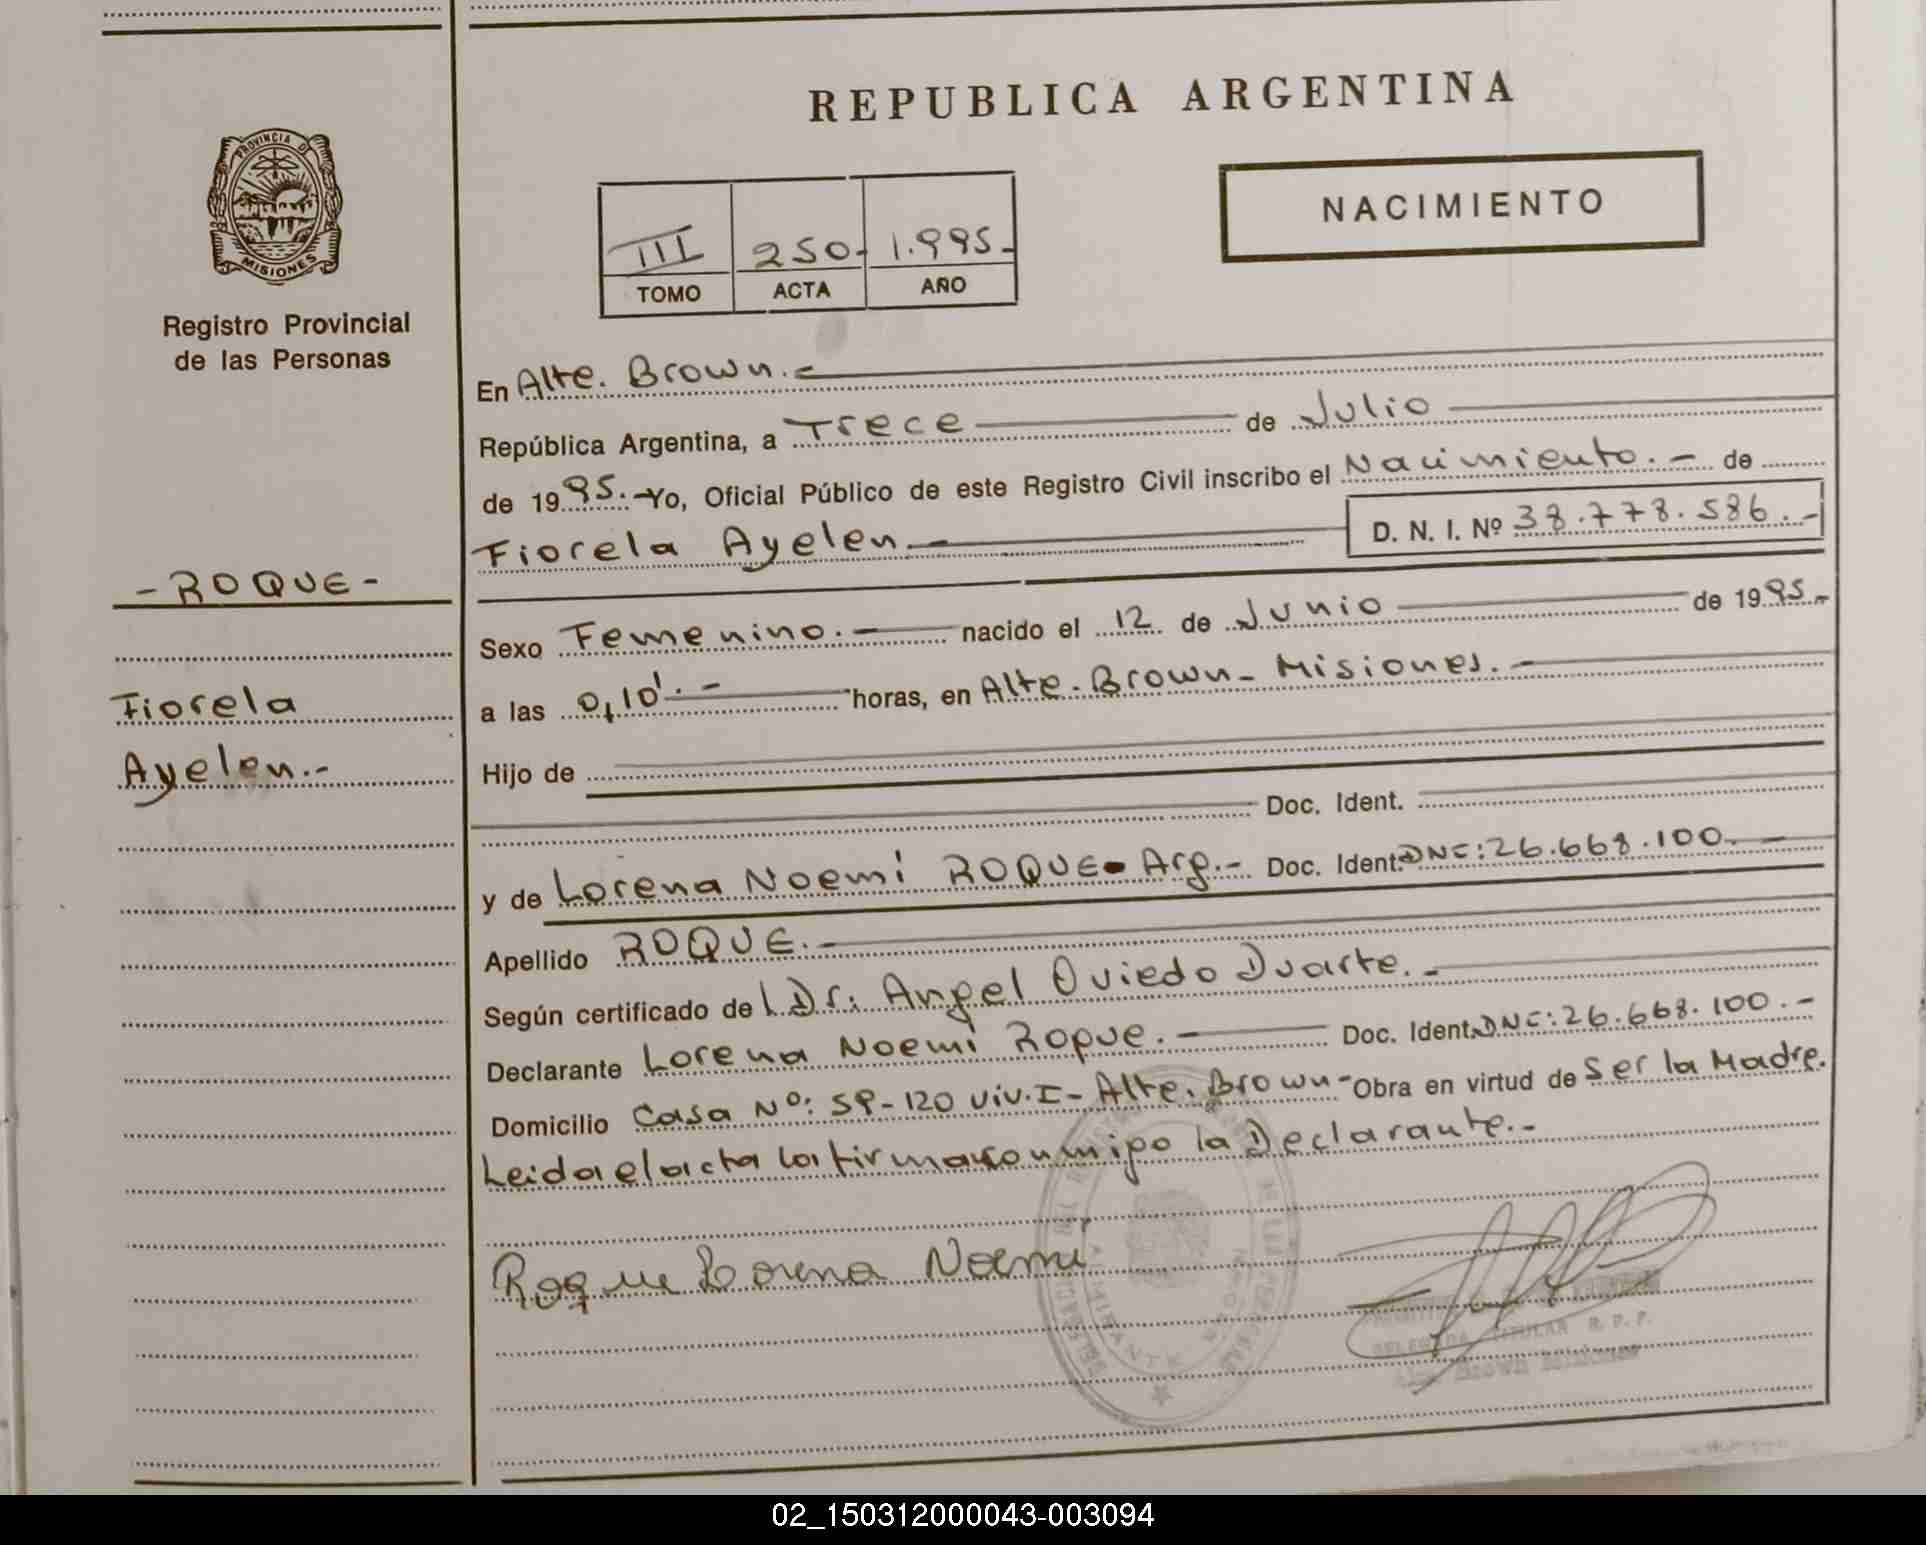 PROVINCIA DE
MISIONES
Registro Provincial
de las Personas
- ROQUE -
Fiorela
Ayelen.-
REPUBLICA ARGENTINA
NACIMIENTO
III 250- 1.995-
TOMO ACTA AÑO
En Alte. Brown.-
República Argentina, a Trece de Julio
de 1995.- Yo, Oficial Público de este Registro Civil inscribo el Nacimiento.- de
Fiorela Ayelen.- D. N. I. Nº 38.778.586.-
Sexo Femenino.- nacido el 12 de Junio de 1995.-
a las 0,10'.- horas, en Alte. Brown- Misiones.-
Hijo de
Doc. Ident.
y de Lorena Noemí ROQUE- Arg.- Doc. Ident. DNI: 26.668.100.-
Apellido ROQUE.-
Según certificado de l Dr. Angel Oviedo Duarte.-
Declarante Lorena Noemí Roque.- Doc. Ident. DNI: 26.668.100.-
Domicilio Casa Nº: SP-120 viv. I- Alte. Brown- Obra en virtud de Ser la Madre.
Leida el acta la firma conmigo la Declarante.-
Roque Lorena Noemí
ALMIRANTE BROWN
TITULAR R. P. P.
Brown
02_150312000043-003094